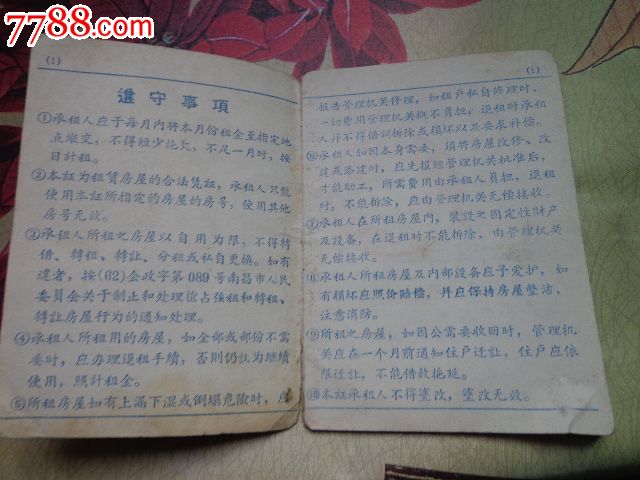 7788.com
(1)
遵守事項
①承租人应于每月内將本月份租金至指定地
点缴交，不得短少拖欠，不足一月時，按
日計租。
②本証为租賃房屋的合法凭証，承租人只能
使用本証所指定的房屋的房号，使用其他
房号无效。
③承租人所租之房屋以自用为限，不得轉
借、轉租、轉註、分租或私自更換。如有
違者，按(62)会政字第089号南昌市人民
委員会关于制止和处理搶占强租和轉租、
轉註房屋行为的通知处理。
④承租人所租用的房屋，如全部或部份不需
要時，应办理退租手續，否則仍认为继續
使用，照計租金。
⑤所租房屋如有上漏下濕或倒塌危險時，应
(1)
报告管理机关修理，如租戶私自修理時，
一切費用管理机关概不負担，退租时承租
人并不得借詞拆除或損坏以及要求补偿。
⑥承租人如因本身需要，須将房屋改修、改
建或添建時，应先报經管理机关批准后，
才能动工，所需費用由承租人負担，退租
時，不能拆除，应由管理机关无偿接收。
⑦承租人在所租房屋内，裝設之固定性財产
及設备，在退租时不能拆除，由管理机关
无偿接收。
⑧承租人所租房屋及内部設备应予爱护，如
有損坏应照价賠偿，并应保持房屋整洁，
注意消防。
⑨所租之房屋，如因公需要收回时，管理机
关应在一个月前通知住戶迁让，住戶应依
限迁让，不能借故拖延。
⑩本証承租人不得塗改，塗改无效。